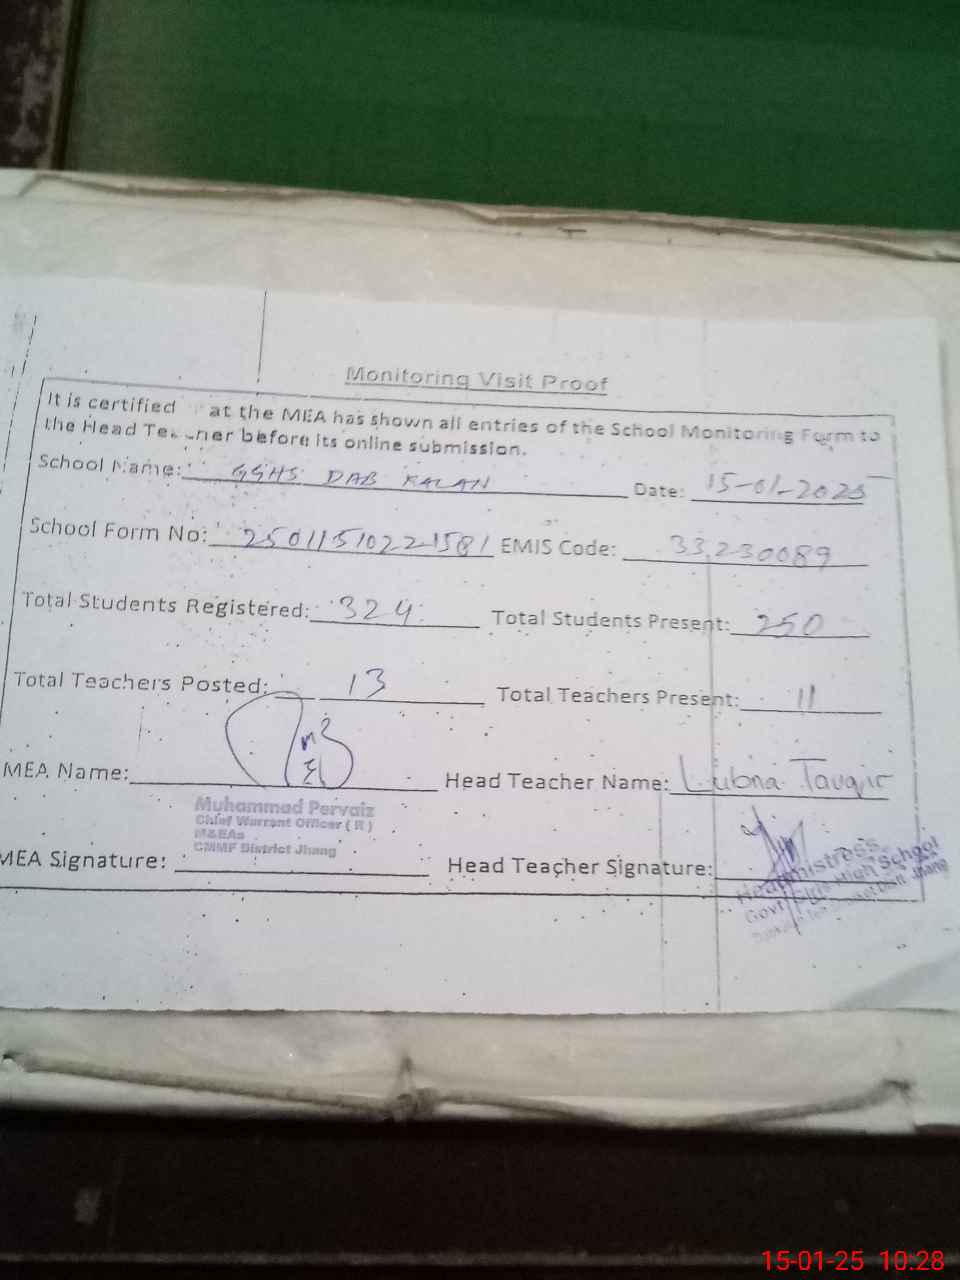 Monitoring Visit Proof
It is certified at the MEA has shown all entries of the School Monitoring Form to
the Head Teacher before its online submission.
School Name: GGHS DAB KALAN Date: 15-01-2025
School Form No: 25011510221581 EMIS Code: 33230089
Total Students Registered: 324 Total Students Present: 250
Total Teachers Posted: 13 Total Teachers Present: 11
MEA Name: Head Teacher Name: Lubna Tauqir
Muhammad Pervaiz
Chief Warrant Officer ( R )
M&EAs
CMMF District Jhang
MEA Signature: Head Teacher Signature:
Headmistress
Govt Girls High School
Jhang
15-01-25 10:28